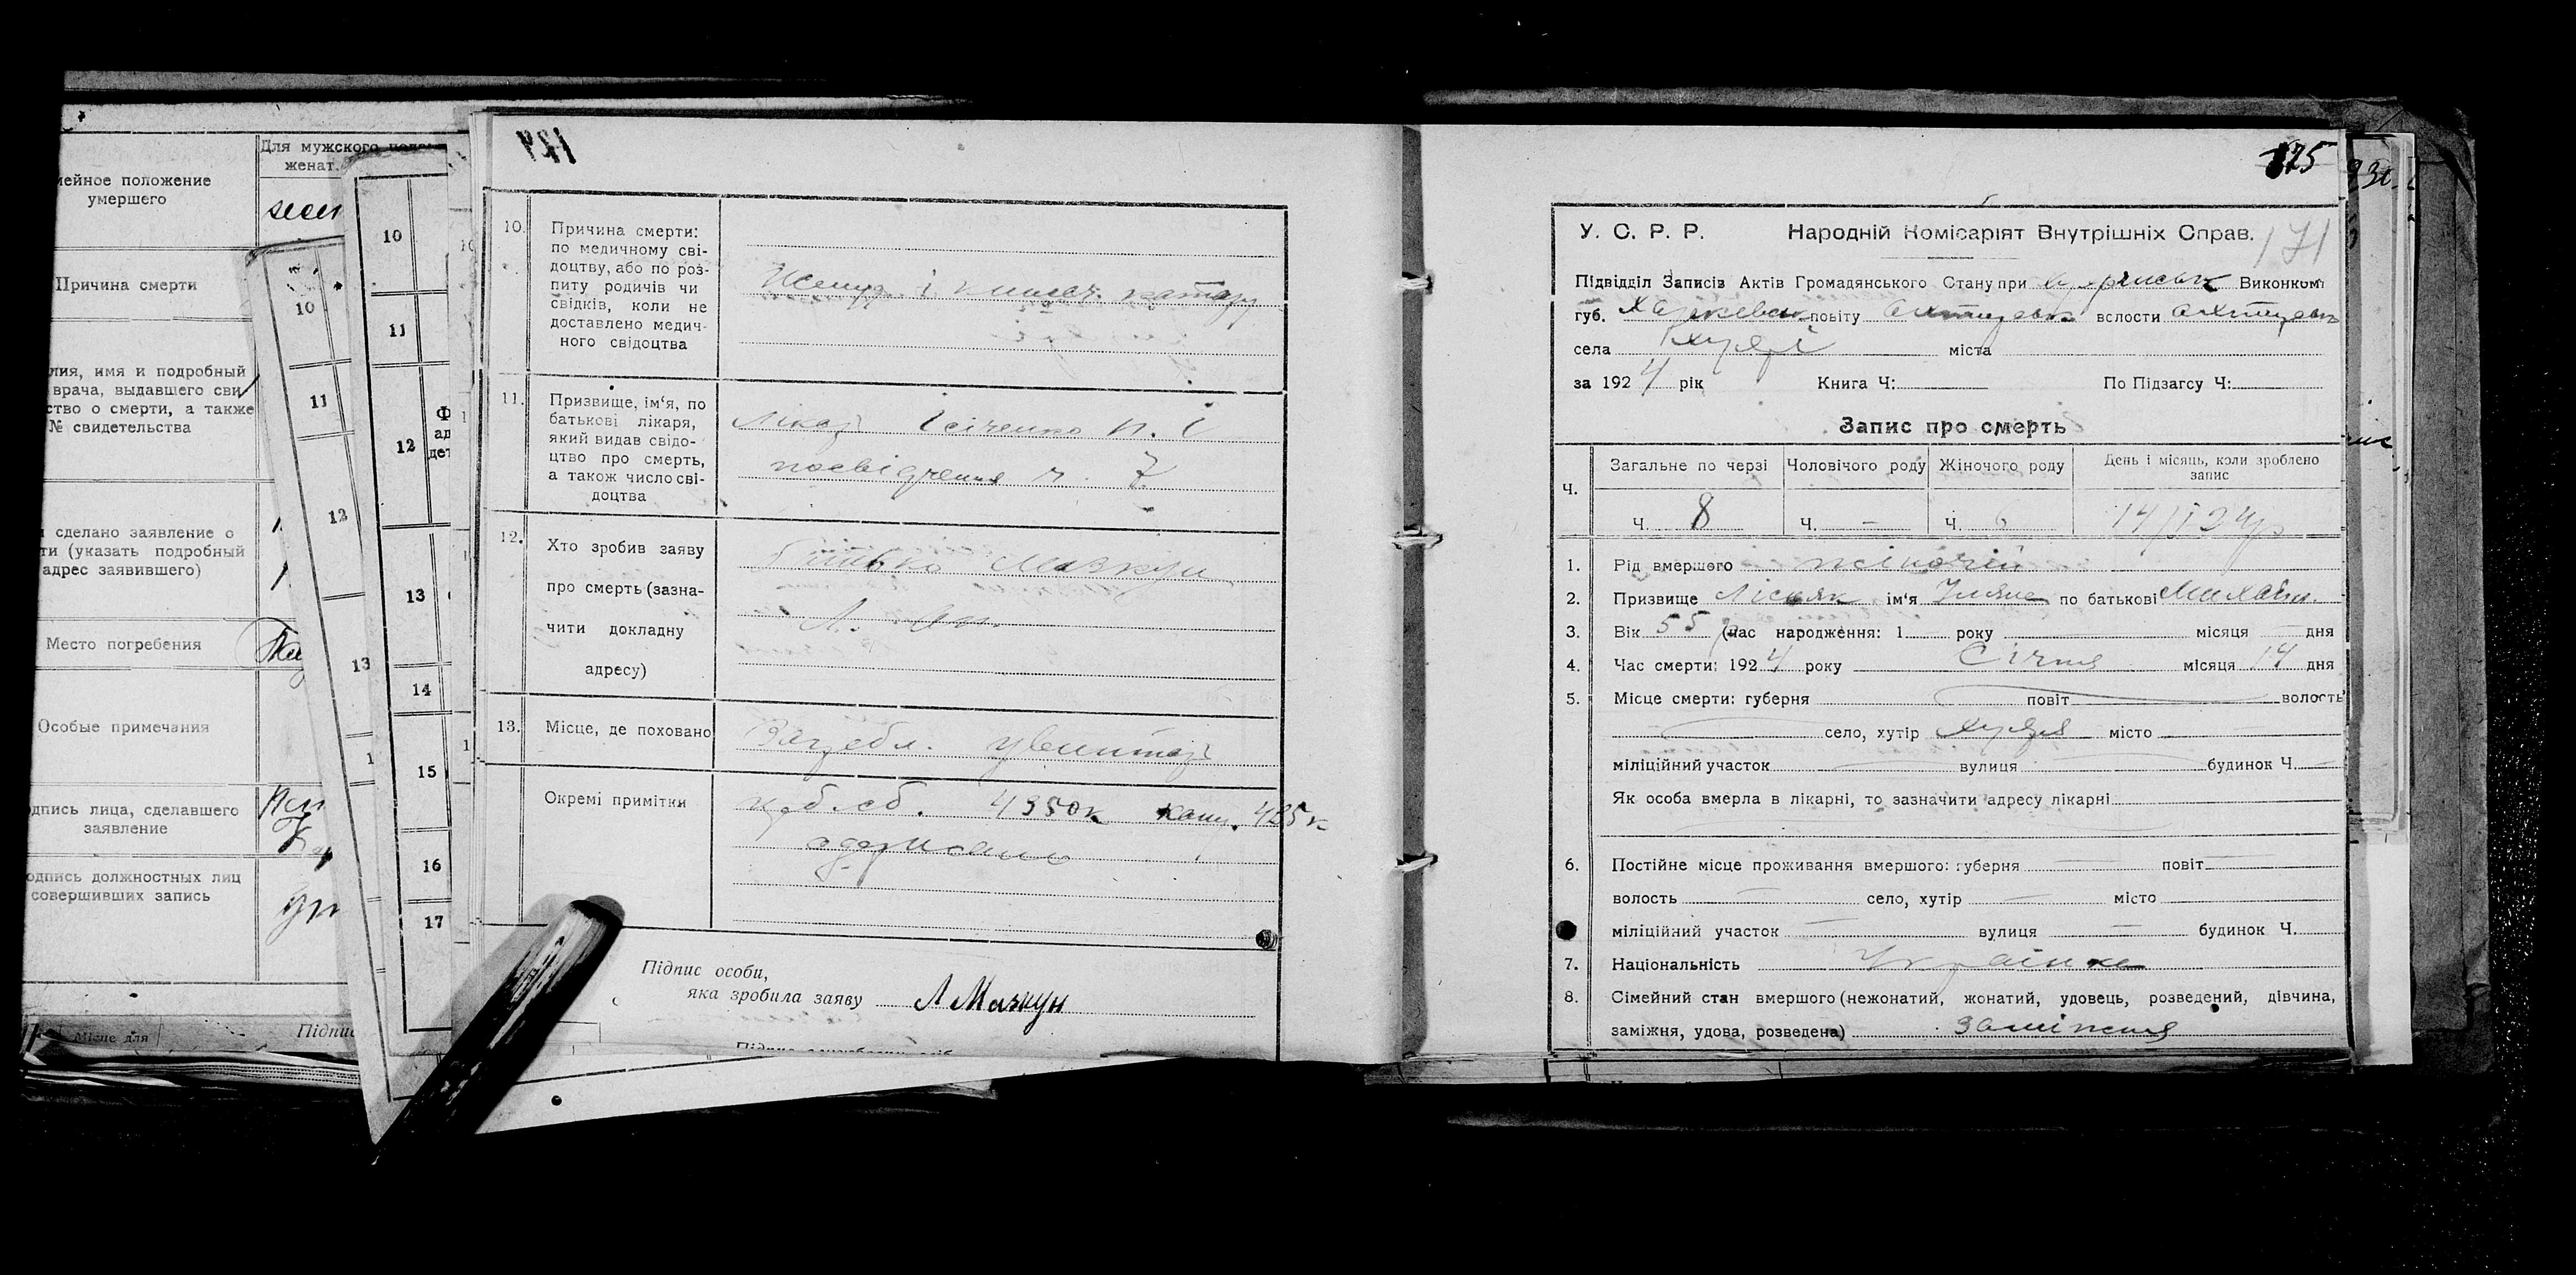 Для мужского
женат.
мейное положение
умершего
Причина смерти
лия, имя и подробный
врача, выдавшего сви
ство о смерти, а также
№ свидетельства
сделано заявление о
ти (указать подробный
адрес заявившего)
Место погребения
Особые примечания
дпись лица, сделавшего
заявление
одпись должностных лиц
совершивших запись
Місце для
Підпис
10
11
12
13
10
11
12
13
14
15
16
17
124
10. Причина смерти:
по медичному сві-
доцтву, або по роз-
питу родичів чи
свідків, коли не
доставлено медич-
ного свідоцтва
і катар
11. Призвище, ім‘я, по
батькові лікаря,
який видав свідо-
цтво про смерть,
а також число сві-
доцтва
Лікар Ісіченко П. І
посвідчення ч. 7
12. Хто зробив заяву
про смерть (зазна-
чити докладну
адресу)
Мазкун
13. Місце, де поховано
цвинтар
Окремі примітки
4350к 425к
одержано
Підпис особи,
яка зробила заяву Л Мазкун
175
171
У. С. Р. Р. Народній Комісаріят Внутрішніх Справ.
Підвідділ Записів Актів Громадянського Стану при Виконкомі
губ. Харківськ повіту Охтирськ волости Охтирськ
села Хухрі міста
за 1924 рік Книга Ч: По Підзагсу Ч:
Запис про смерть
Ч. Загальне по черзі Чоловічого роду Жіночого роду День і місяць, коли зроблено
запис
Ч. 8 Ч. – Ч. 6 14/I 24р
1. Рід вмершого жіночій
2. Призвище ім‘я Уляна по батькові Михайл.
3. Вік 55 (час народження: 1 року місяця дня
4. Час смерти: 1924 року Січня місяця 14 дня
5. Місце смерти: губерня повіт волость
село, хутір Хухря місто
міліційний участок вулиця будинок Ч.
Як особа вмерла в лікарні, то зазначити адресу лікарні
6. Постійне місце проживання вмершого: губерня повіт
волость село, хутір місто
міліційний участок вулиця будинок Ч.
7. Національність Українка
8. Сімейний стан вмершого (нежонатий, жонатий, удовець, розведений, дівчина,
заміжня, удова, розведена) Заміжня